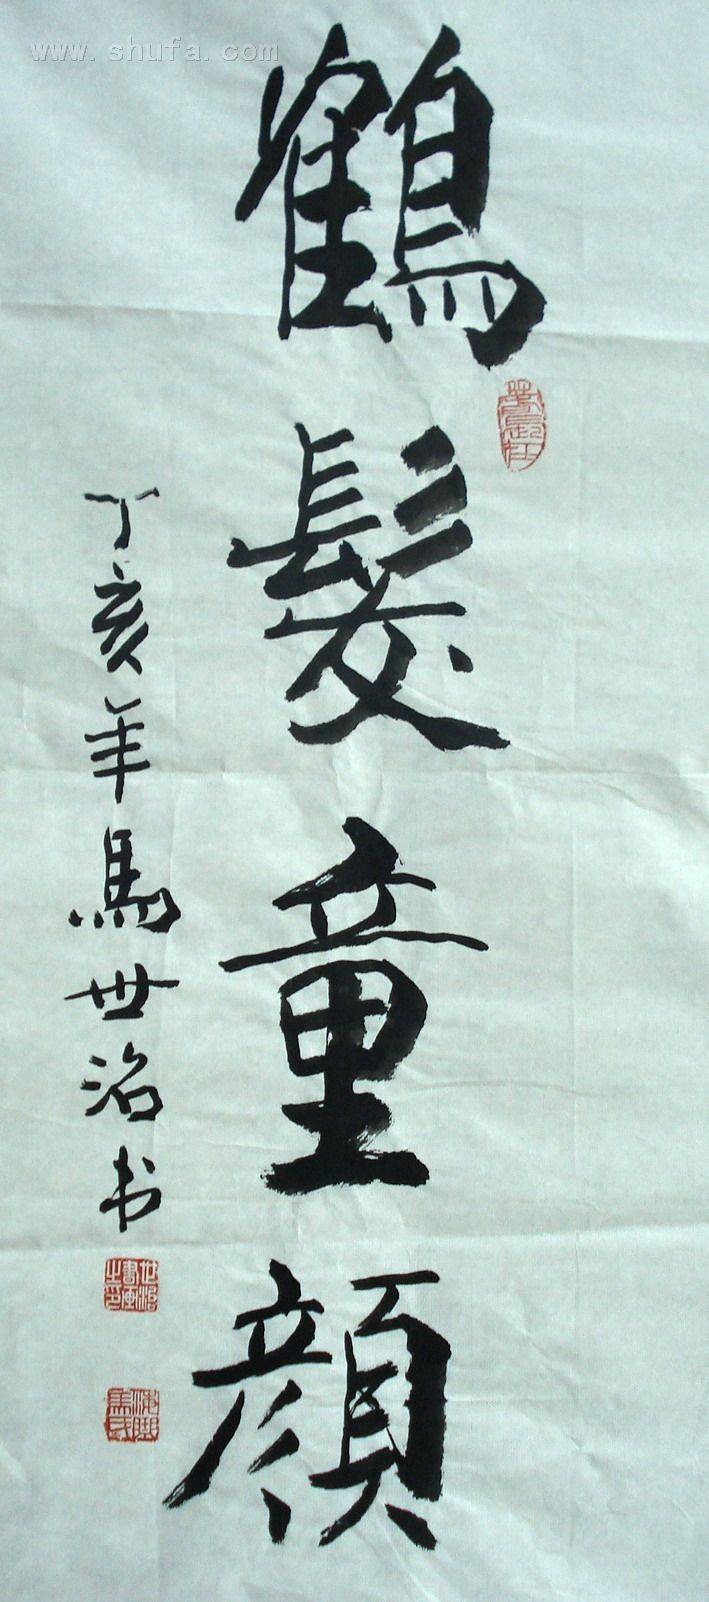 www.shufa.com
鶴髮童顏
丁亥年馬世洺书